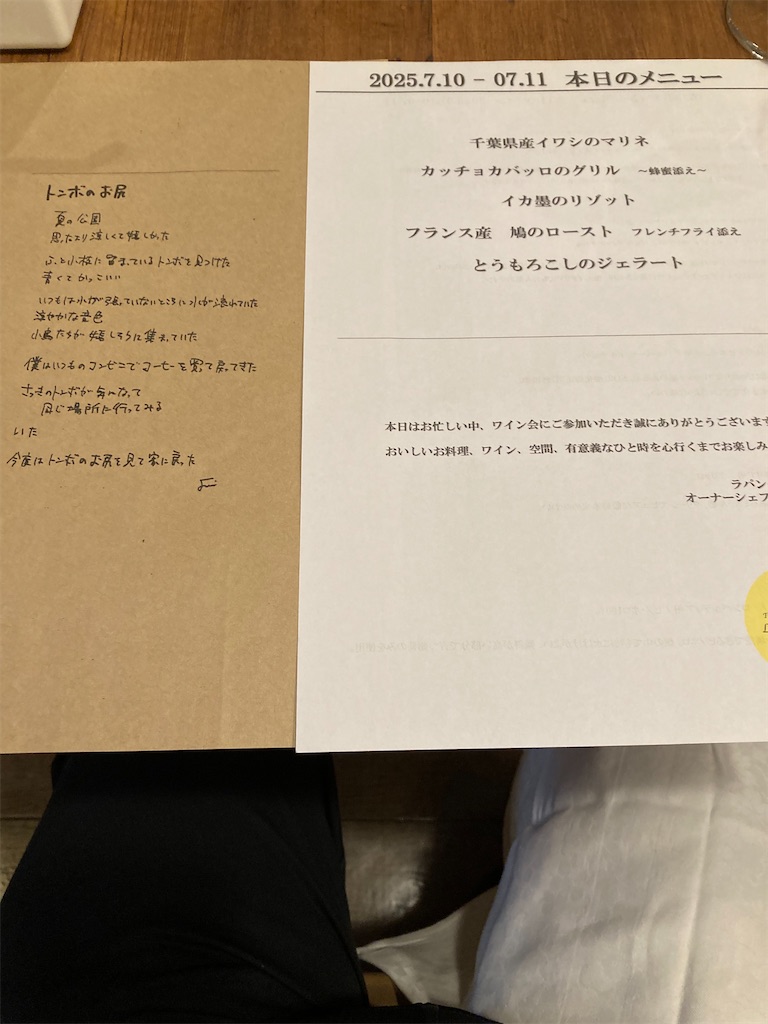 トンボのお尻
夏の公園
思ったより涼しくて嬉しかった
ふと小枝に留まっているトンボを見つけた
青くてかっこいい
いつもは水が張っていないところに水が流れていた
涼やかな音色
小鳥たちが嬉しそうに集まっていた
僕はいつものコンビニでコーヒーを買って戻ってきた
さっきのトンボが気になって
同じ場所に行ってみる
いた
今度はトンボのお尻を見て家に戻った
2025.7.10 − 07.11 本日のメニュー
千葉県産イワシのマリネ
カッチョカバッロのグリル ～蜂蜜添え～
イカ墨のリゾット
フランス産 鳩のロースト フレンチフライ添え
とうもろこしのジェラート
本日はお忙しい中、ワイン会にご参加いただき誠にありがとうございます
おいしいお料理、ワイン、空間、有意義なひと時を心行くまでお楽しみ
ラパン
オーナーシェフ